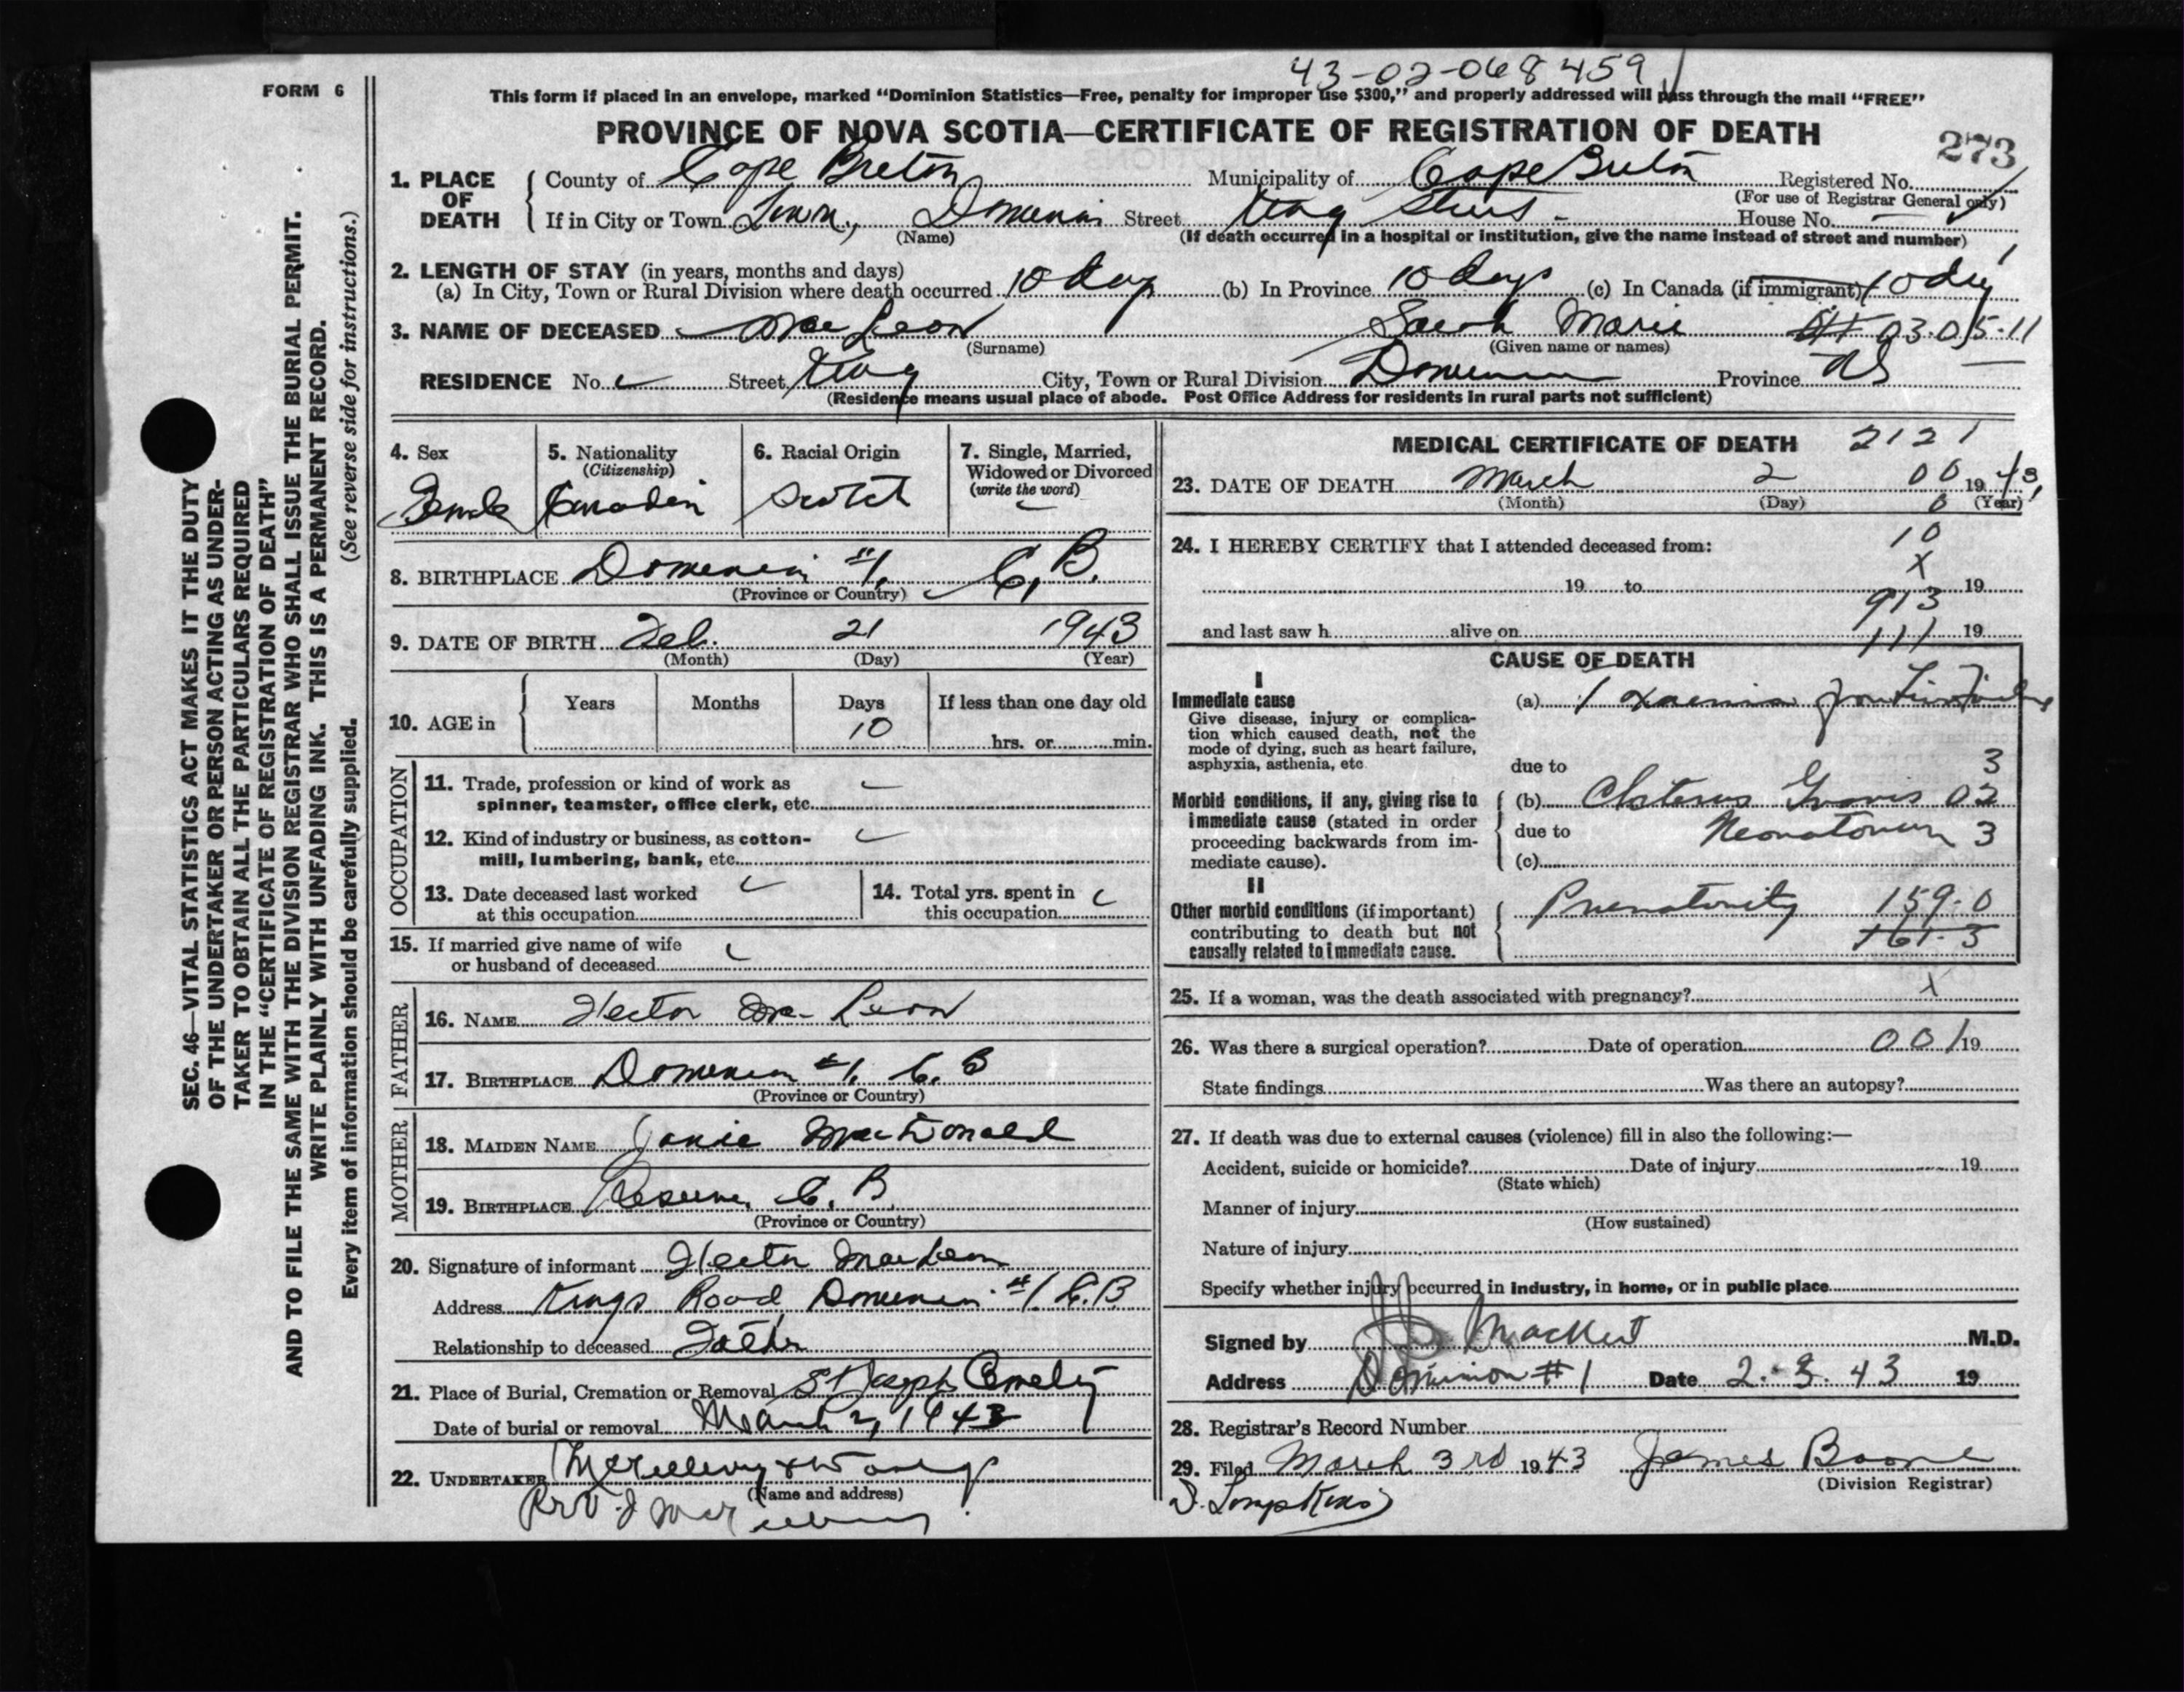 43-02-068459
FORM 6
This form if placed in an envelope, marked "Dominion Statistics—Free, penalty for improper use $300," and properly addressed will pass through the mail "FREE"
PROVINCE OF NOVA SCOTIA—CERTIFICATE OF REGISTRATION OF DEATH
273
1. PLACE OF DEATH
County of Cape Breton Municipality of Cape Breton Registered No.
(For use of Registrar General only)
If in City or Town Town, Dominion Street King Street - House No. -
(Name) (If death occurred in a hospital or institution, give the name instead of street and number)
2. LENGTH OF STAY (in years, months and days)
(a) In City, Town or Rural Division where death occurred 10 days (b) In Province 10 days (c) In Canada (if immigrant) 10 days
3. NAME OF DECEASED MacLean Sarah Marie 03-05-11
(Surname) (Given name or names)
RESIDENCE No. Street King City, Town or Rural Division Dominion Province NS
(Residence means usual place of abode. Post Office Address for residents in rural parts not sufficient)
4. Sex
Female
5. Nationality
(Citizenship)
Canadian
6. Racial Origin
Scotch
7. Single, Married,
Widowed or Divorced
(write the word)
8. BIRTHPLACE Dominion #1, C.B.
(Province or Country)
9. DATE OF BIRTH Feb. 21 1943
(Month) (Day) (Year)
10. AGE in Years Months Days If less than one day old
10 hrs. or min.
OCCUPATION
11. Trade, profession or kind of work as
spinner, teamster, office clerk, etc.
12. Kind of industry or business, as cotton-
mill, lumbering, bank, etc.
13. Date deceased last worked
at this occupation
14. Total yrs. spent in
this occupation
15. If married give name of wife
or husband of deceased
FATHER
16. NAME Hector MacLean
17. BIRTHPLACE Dominion #1, C.B
(Province or Country)
MOTHER
18. MAIDEN NAME Janie MacDonald
19. BIRTHPLACE Reserve, C.B.
(Province or Country)
20. Signature of informant Hector MacLean
Address Kings Road Dominion #1, C.B
Relationship to deceased Father
21. Place of Burial, Cremation or Removal St Joseph Cemetery
Date of burial or removal March 2, 1943
22. UNDERTAKER
(Name and address)
MEDICAL CERTIFICATE OF DEATH 2121
23. DATE OF DEATH March 2 00 1943,
(Month) (Day) (Year)
0
24. I HEREBY CERTIFY that I attended deceased from: 10
X
19 to 19
913
and last saw h alive on 19
111
CAUSE OF DEATH
I
Immediate cause
Give disease, injury or complica-
tion which caused death, not the
mode of dying, such as heart failure,
asphyxia, asthenia, etc
(a)
due to 3
Morbid conditions, if any, giving rise to
immediate cause (stated in order
proceeding backwards from im-
mediate cause).
(b) Icterus Gravis 02
due to Neonatorum 3
(c)
II
Other morbid conditions (if important)
contributing to death but not
causally related to immediate cause.
Prematurity 159-0
161-3
25. If a woman, was the death associated with pregnancy? X
26. Was there a surgical operation? Date of operation 001 19
State findings Was there an autopsy?
27. If death was due to external causes (violence) fill in also the following:—
Accident, suicide or homicide? Date of injury 19
(State which)
Manner of injury
(How sustained)
Nature of injury
Specify whether injury occurred in industry, in home, or in public place
Signed by M.D.
Address Dominion #1 Date 2-3-43 19
28. Registrar's Record Number
29. Filed March 3rd 1943 James Boone
(Division Registrar)
D. Tompkins
SEC. 46—VITAL STATISTICS ACT MAKES IT THE DUTY
OF THE UNDERTAKER OR PERSON ACTING AS UNDER-
TAKER TO OBTAIN ALL THE PARTICULARS REQUIRED
IN THE "CERTIFICATE OF REGISTRATION OF DEATH"
AND TO FILE THE SAME WITH THE DIVISION REGISTRAR WHO SHALL ISSUE THE BURIAL PERMIT.
WRITE PLAINLY WITH UNFADING INK. THIS IS A PERMANENT RECORD.
Every item of information should be carefully supplied. (See reverse side for instructions.)